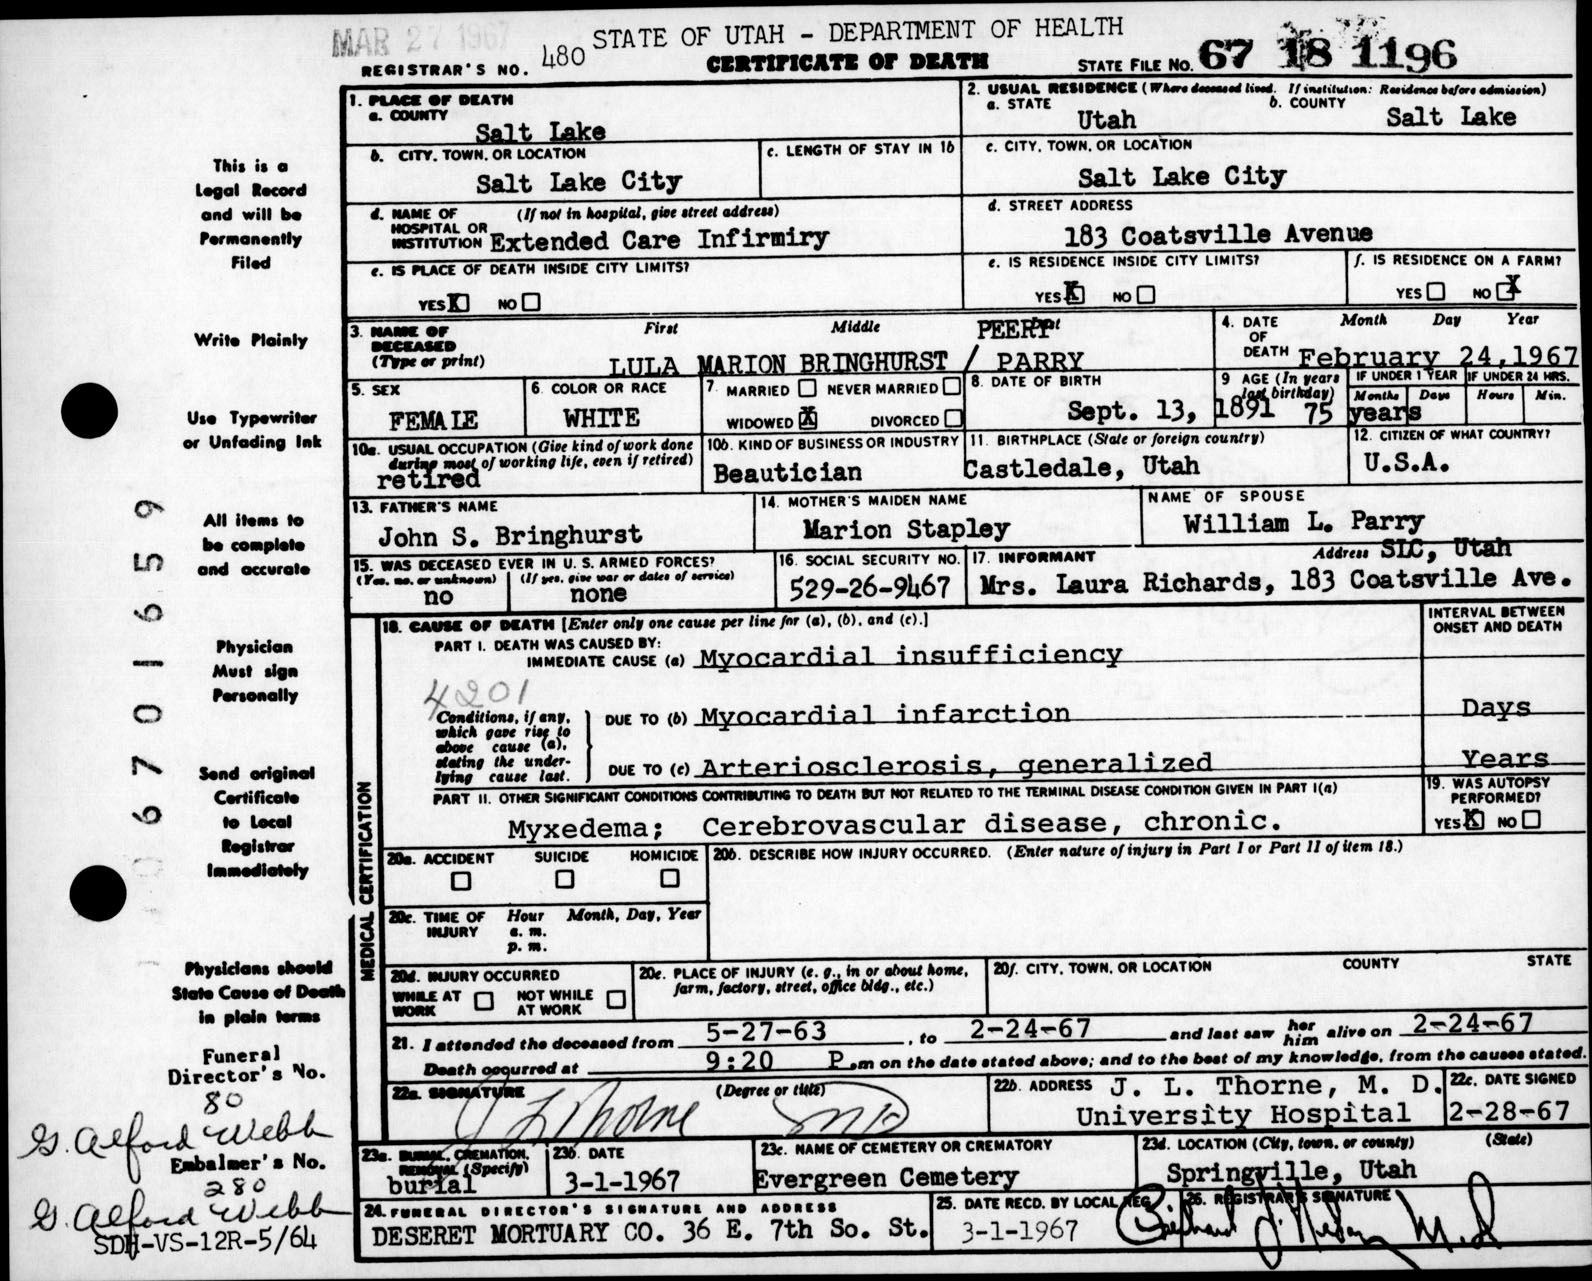 MAR 27 1967
STATE OF UTAH - DEPARTMENT OF HEALTH
REGISTRAR'S NO. 480
CERTIFICATE OF DEATH
STATE FILE NO. 67 18 1196
This is a
Legal Record
and will be
Permanently
Filed
Write Plainly
Use Typewriter
or Unfading Ink
All items to
be complete
and accurate
Physician
Must sign
Personally
Send original
Certificate
to Local
Registrar
Immediately
Physicians should
State Cause of Death
in plain terms
Funeral
Director's No.
80
G. Alford Webb
Embalmer's No.
280
G. Alford Webb
SDH-VS-12R-5/64
6701659
1. PLACE OF DEATH
a. COUNTY
Salt Lake
2. USUAL RESIDENCE (Where deceased lived. If institution: Residence before admission)
a. STATE
Utah
b. COUNTY
Salt Lake
b. CITY, TOWN, OR LOCATION
Salt Lake City
c. LENGTH OF STAY IN 1b
c. CITY, TOWN, OR LOCATION
Salt Lake City
d. NAME OF HOSPITAL OR INSTITUTION (If not in hospital, give street address)
Extended Care Infirmiry
d. STREET ADDRESS
183 Coatsville Avenue
e. IS PLACE OF DEATH INSIDE CITY LIMITS?
YES X NO
e. IS RESIDENCE INSIDE CITY LIMITS?
YES X NO
f. IS RESIDENCE ON A FARM?
YES NO X
3. NAME OF DECEASED (Type or print)
First Middle Last
PEERY
LULA MARION BRINGHURST / PARRY
4. DATE OF DEATH
Month Day Year
February 24,1967
5. SEX
FEMALE
6. COLOR OR RACE
WHITE
7. MARRIED NEVER MARRIED
WIDOWED X DIVORCED
8. DATE OF BIRTH
Sept. 13, 1891
9 AGE (In years last birthday)
75 years
IF UNDER 1 YEAR
Months Days
IF UNDER 24 HRS.
Hours Min.
10a. USUAL OCCUPATION (Give kind of work done during most of working life, even if retired)
retired
10b. KIND OF BUSINESS OR INDUSTRY
Beautician
11. BIRTHPLACE (State or foreign country)
Castledale, Utah
12. CITIZEN OF WHAT COUNTRY?
U.S.A.
13. FATHER'S NAME
John S. Bringhurst
14. MOTHER'S MAIDEN NAME
Marion Stapley
NAME OF SPOUSE
William L. Parry
15. WAS DECEASED EVER IN U. S. ARMED FORCES?
(Yes, no, or unknown) (If yes, give war or dates of service)
no none
16. SOCIAL SECURITY NO.
529-26-9467
17. INFORMANT Address SLC, Utah
Mrs. Laura Richards, 183 Coatsville Ave.
MEDICAL CERTIFICATION
18. CAUSE OF DEATH [Enter only one cause per line for (a), (b), and (c).]
INTERVAL BETWEEN ONSET AND DEATH
PART I. DEATH WAS CAUSED BY:
IMMEDIATE CAUSE (a) Myocardial insufficiency
4201
Conditions, if any, which gave rise to above cause (a), stating the underlying cause last.
DUE TO (b) Myocardial infarction Days
DUE TO (c) Arteriosclerosis, generalized Years
PART II. OTHER SIGNIFICANT CONDITIONS CONTRIBUTING TO DEATH BUT NOT RELATED TO THE TERMINAL DISEASE CONDITION GIVEN IN PART I(a)
Myxedema; Cerebrovascular disease, chronic.
19. WAS AUTOPSY PERFORMED?
YES X NO
20a. ACCIDENT SUICIDE HOMICIDE
20b. DESCRIBE HOW INJURY OCCURRED. (Enter nature of injury in Part I or Part II of item 18.)
20c. TIME OF INJURY
Hour Month, Day, Year
a. m.
p. m.
20d. INJURY OCCURRED
WHILE AT WORK NOT WHILE AT WORK
20e. PLACE OF INJURY (e. g., in or about home, farm, factory, street, office bldg., etc.)
20f. CITY, TOWN, OR LOCATION COUNTY STATE
21. I attended the deceased from 5-27-63, to 2-24-67 and last saw her him alive on 2-24-67
Death occurred at 9:20 P.m on the date stated above; and to the best of my knowledge, from the causes stated.
22a. SIGNATURE (Degree or title)
J L Thorne MD
22b. ADDRESS J. L. Thorne, M. D.
University Hospital
22c. DATE SIGNED
2-28-67
23a. BURIAL, CREMATION, REMOVAL (Specify)
burial
23b. DATE
3-1-1967
23c. NAME OF CEMETERY OR CREMATORY
Evergreen Cemetery
23d. LOCATION (City, town, or county) (State)
Springville, Utah
24. FUNERAL DIRECTOR'S SIGNATURE AND ADDRESS
DESERET MORTUARY CO. 36 E. 7th So. St.
25. DATE RECD. BY LOCAL REG.
3-1-1967
26. REGISTRAR'S SIGNATURE